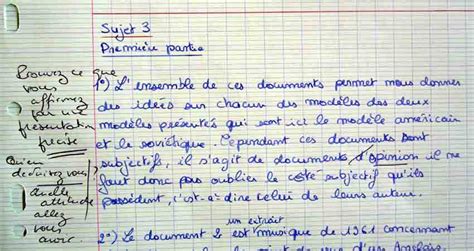 Sujet 3
Première partie
Prouvez ce que
vous
affirmez
par une
présentation
précise
1°) L'ensemble de ces documents permet nous donner
des idées sur chacun des modèles des deux
modèles présentés qui sont ici le modèle américain
et le soviétique. Cependant ces documents sont
subjectifs, il s'agit de documents d'opinion il ne
faut donc pas oublier le côté subjectif qu'ils
possèdent, c'est-à-dire celui de leurs auteur.
définissez vous
Quelle
attitude
allez
vous
avoir.
un extrait
2°) Le document 2 est musique de 1961 concernant